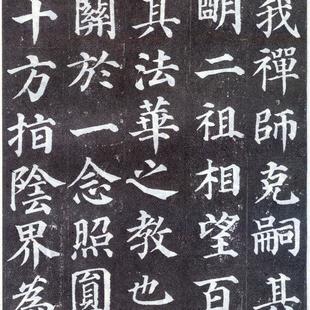 我禪師克嗣其
明二祖相望百
其法華之教也
關於一念照圓
十方指陰界為